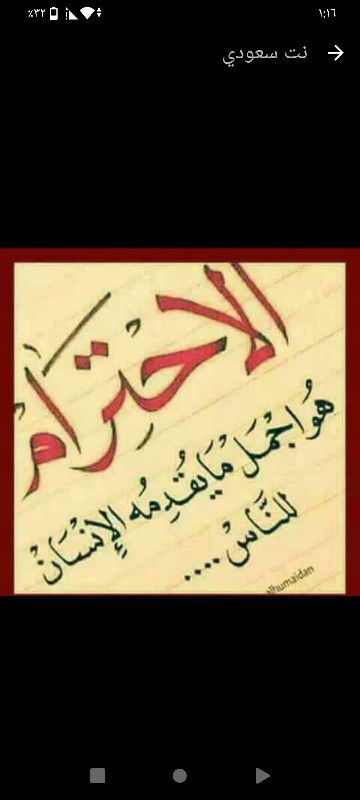 ١:١٦
٪٣٢
نت سعودي
الاحترام
هُو اجْمَل مَايُقدِمُه الإِنْسَانْ
للنَّاسْ ....
alhumaidan